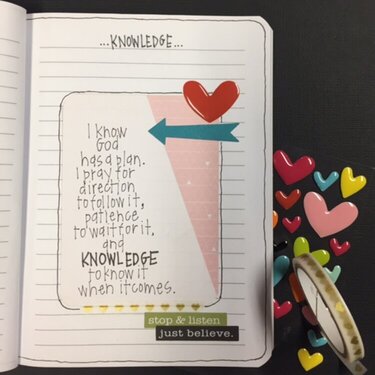 ...KNOWLEDGE...
I know
God
has a plan.
I pray for
direction
to follow it,
patience
to wait for it,
and
KNOWLEDGE
to know it
when it comes.
stop & listen
just believe.